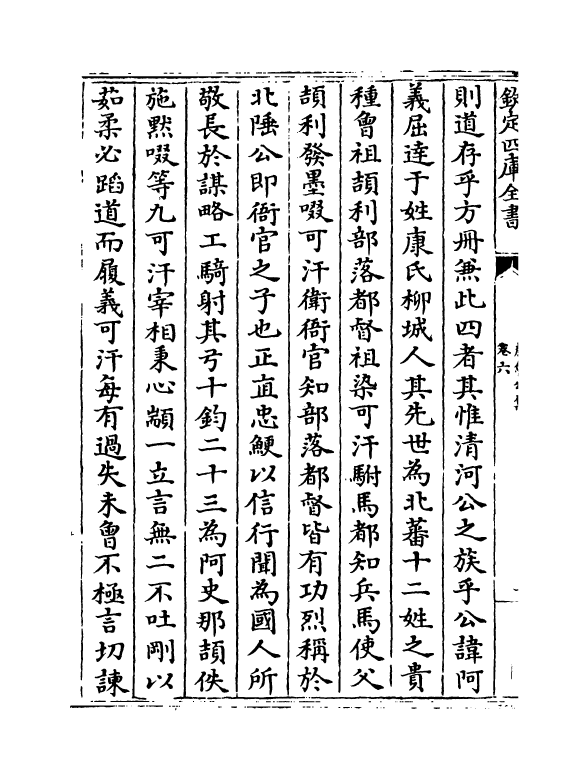 欽定四庫全書
卷六
則道存乎方冊兼此四者其惟清河公之族乎公諱阿
義屈逹于姓康氏柳城人其先世為北蕃十二姓之貴
種曾祖頡利部落都督祖染可汗駙馬都知兵馬使父
頡利發墨啜可汗衛衙官知部落都督皆有功烈稱於
北陲公即衙官之子也正直忠鯁以信行聞為國人所
敬長於謀略工騎射其弓十鈞二十三為阿史那頡佚
施黙啜等九可汗宰相秉心顓一立言無二不吐剛以
茹柔必蹈道而履義可汗每有過失未曾不極言切諫